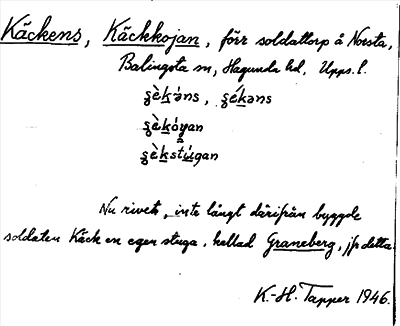 Käckens, Käckkojan, förr soldattorp å Norsta,
Balingsta sn, Hagunda hd, Upps. l.
ṣèḱəns, ṣéḱəns
ṣèkóyan
ṣèkstúgan
Nu rivet, inte långt därifrån byggde
soldaten Käck en egen stuga, kallad Graneberg, jfr detta.
K.-H. Tapper 1946.